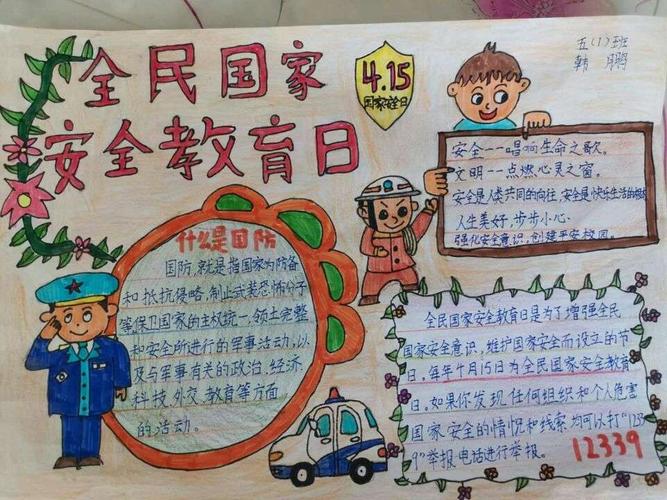 全民国家
安全教育日
4.15
国家安全日
五（1）班
韩鹏
安全——唱响生命之歌。
文明——点燃心灵之窗。
安全是人类共同的向往，安全是快乐生活的
人生美好，步步小心
强化安全意识，创建平安校园。
什么是国防
国防，就是指国家为防备
和抵抗侵略，制止武装恐怖分子
等保卫国家的主权统一，领土完整
和安全所进行的军事活动，以
及与军事有关的政治，经济，
科技，外交，教育等方面
的活动。
全民国家安全教育日是为了增强全民
国家安全意识，维护国家安全而设立的节
日。每年4月15日为全民国家安全教育
日。如果你发现任何组织和个人危害
国家安全的情况和线索均可以打"1233
9"举报电话进行举报。
12339